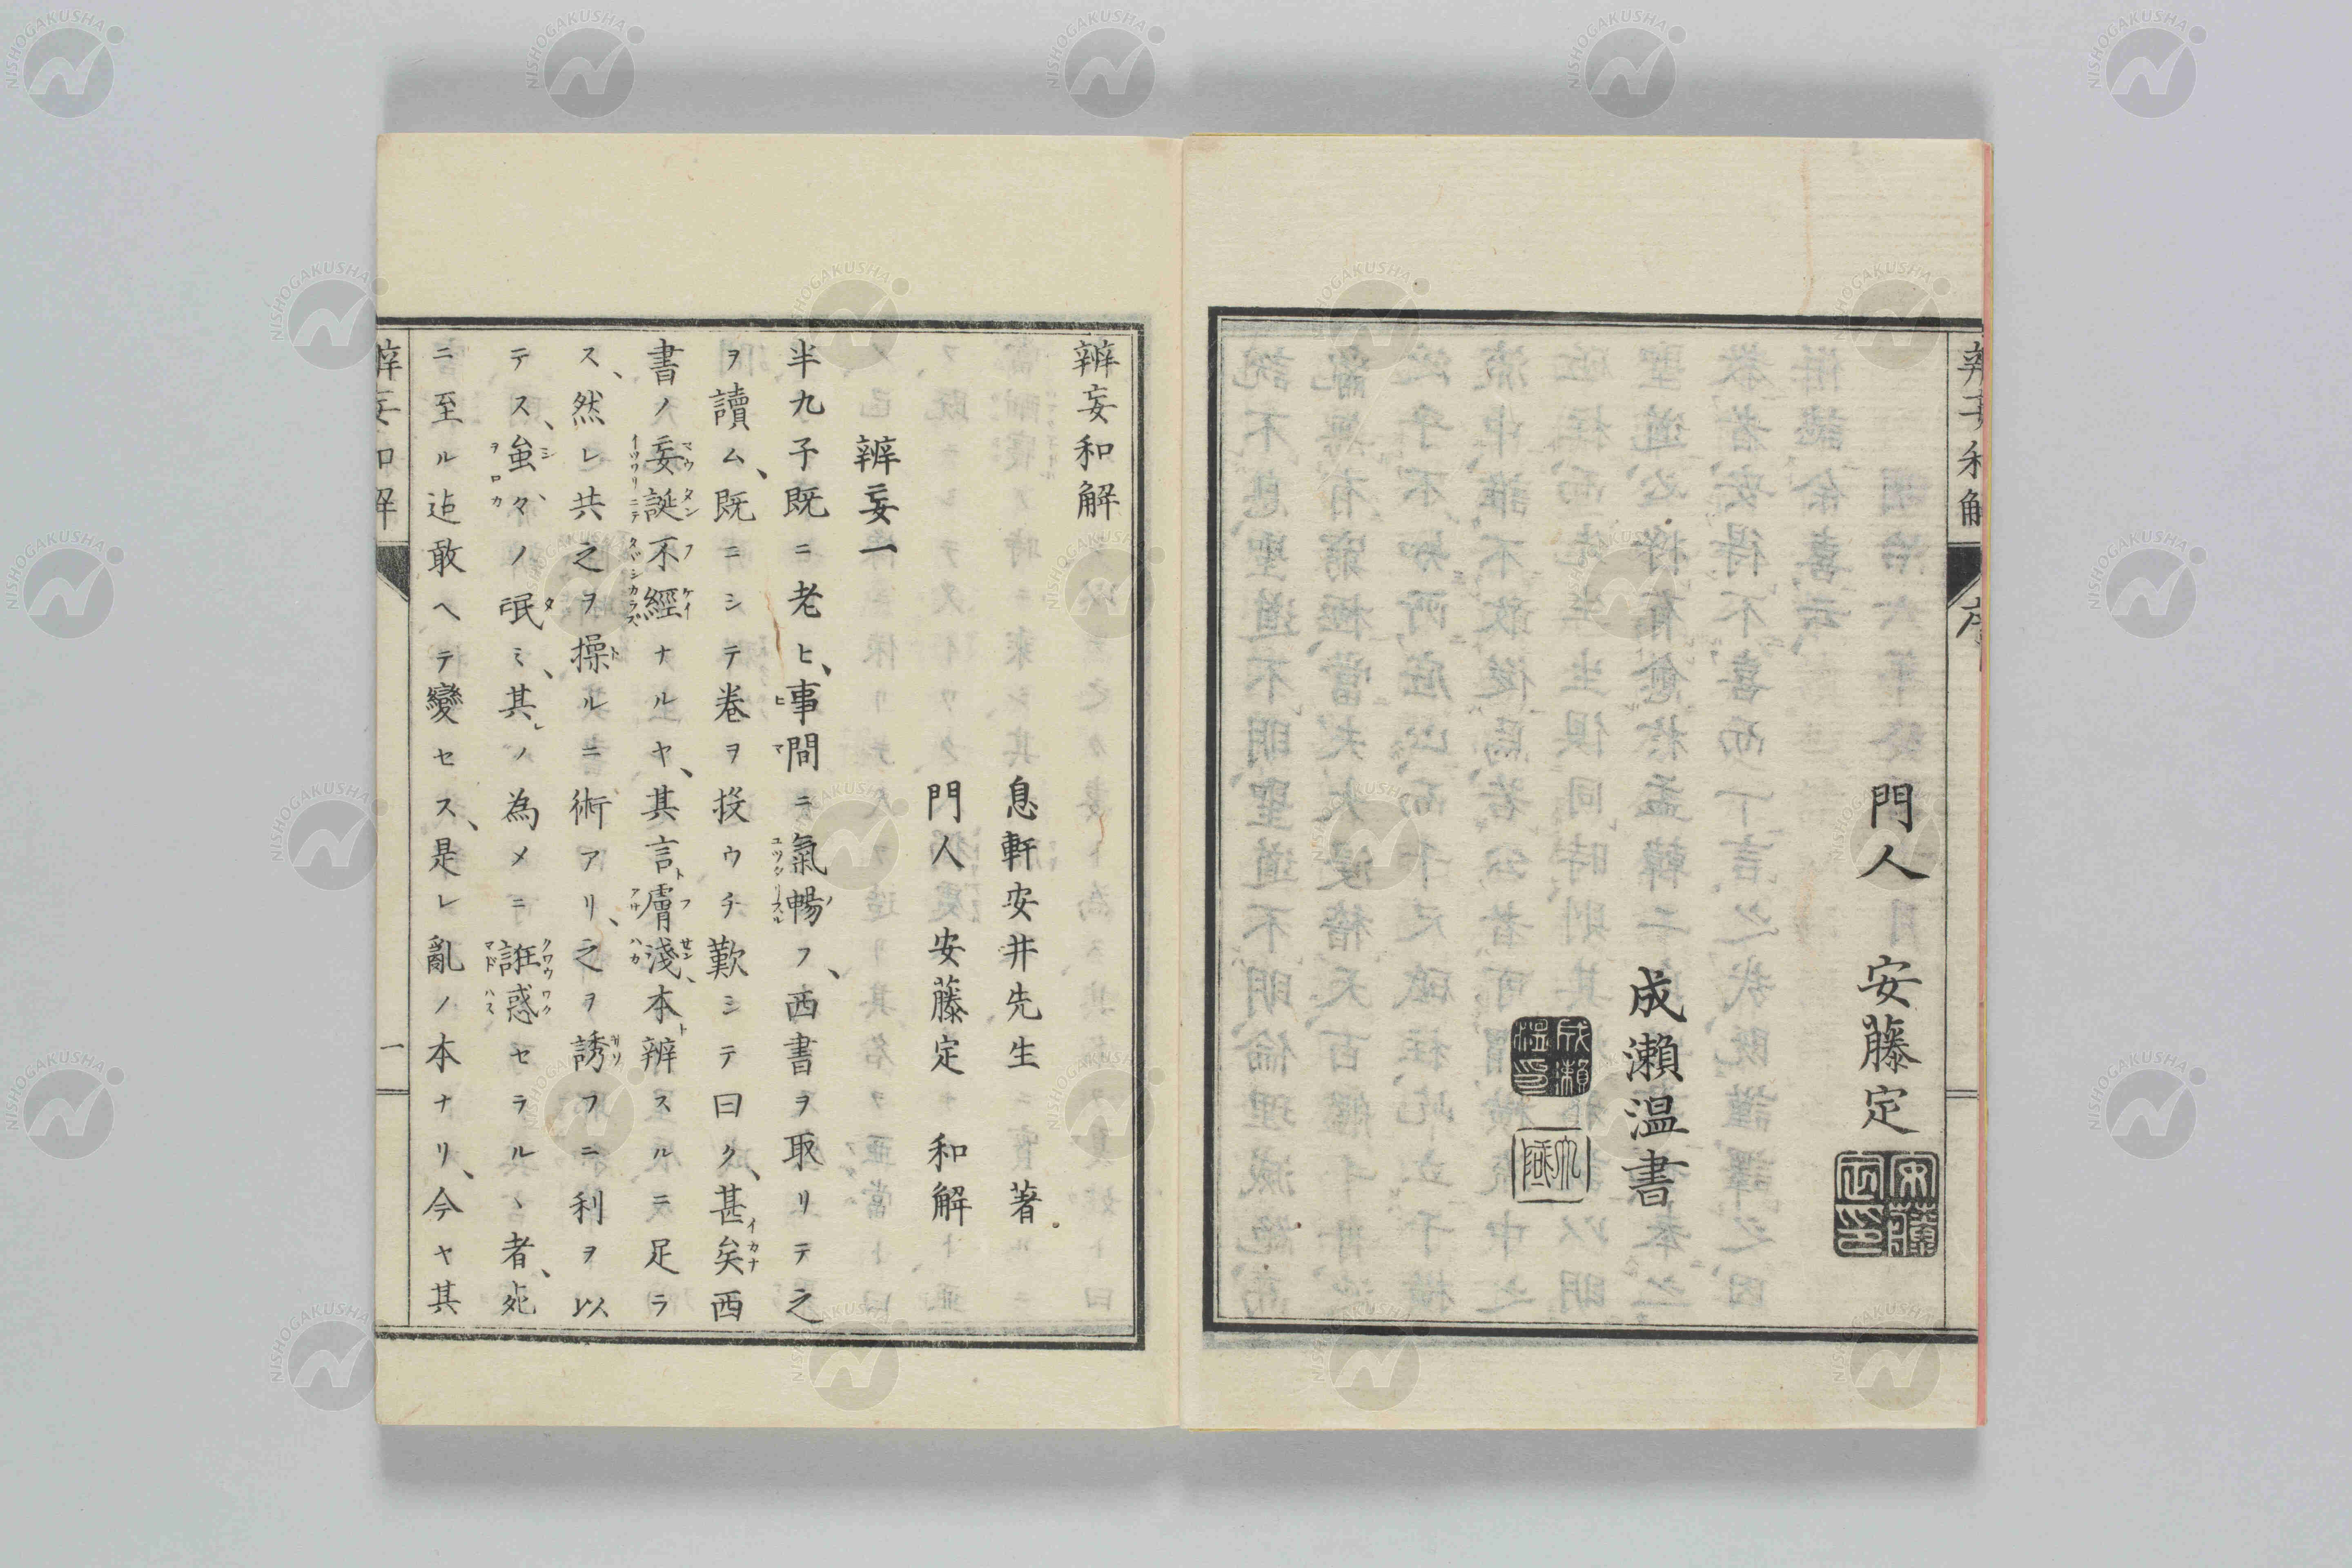 門人 安藤定
成瀬温書
辨妄和解
息軒安井先生 著
門人 安藤定 和解
辨妄一
半九子既ニ老ヒ、事間ニ氣暢フ、西書ヲ取リテ之
ヲ讀ム、既ニシテ卷ヲ投ウチ歎シテ曰ク、甚矣西
書ノ妄誕不經ナルヤ、其言膚淺、本辨スルニ足ラ
ス、然レ共之ヲ操ルニ術アリ、之ヲ誘フニ利ヲ以
テス、蚩々ノ氓ミ、其ノ為メニ誑惑セラルヽ者、死
ニ至ル迠敢ヘテ變セス、是レ亂ノ本ナリ、今ヤ其
一
NISHOGAKUSHA